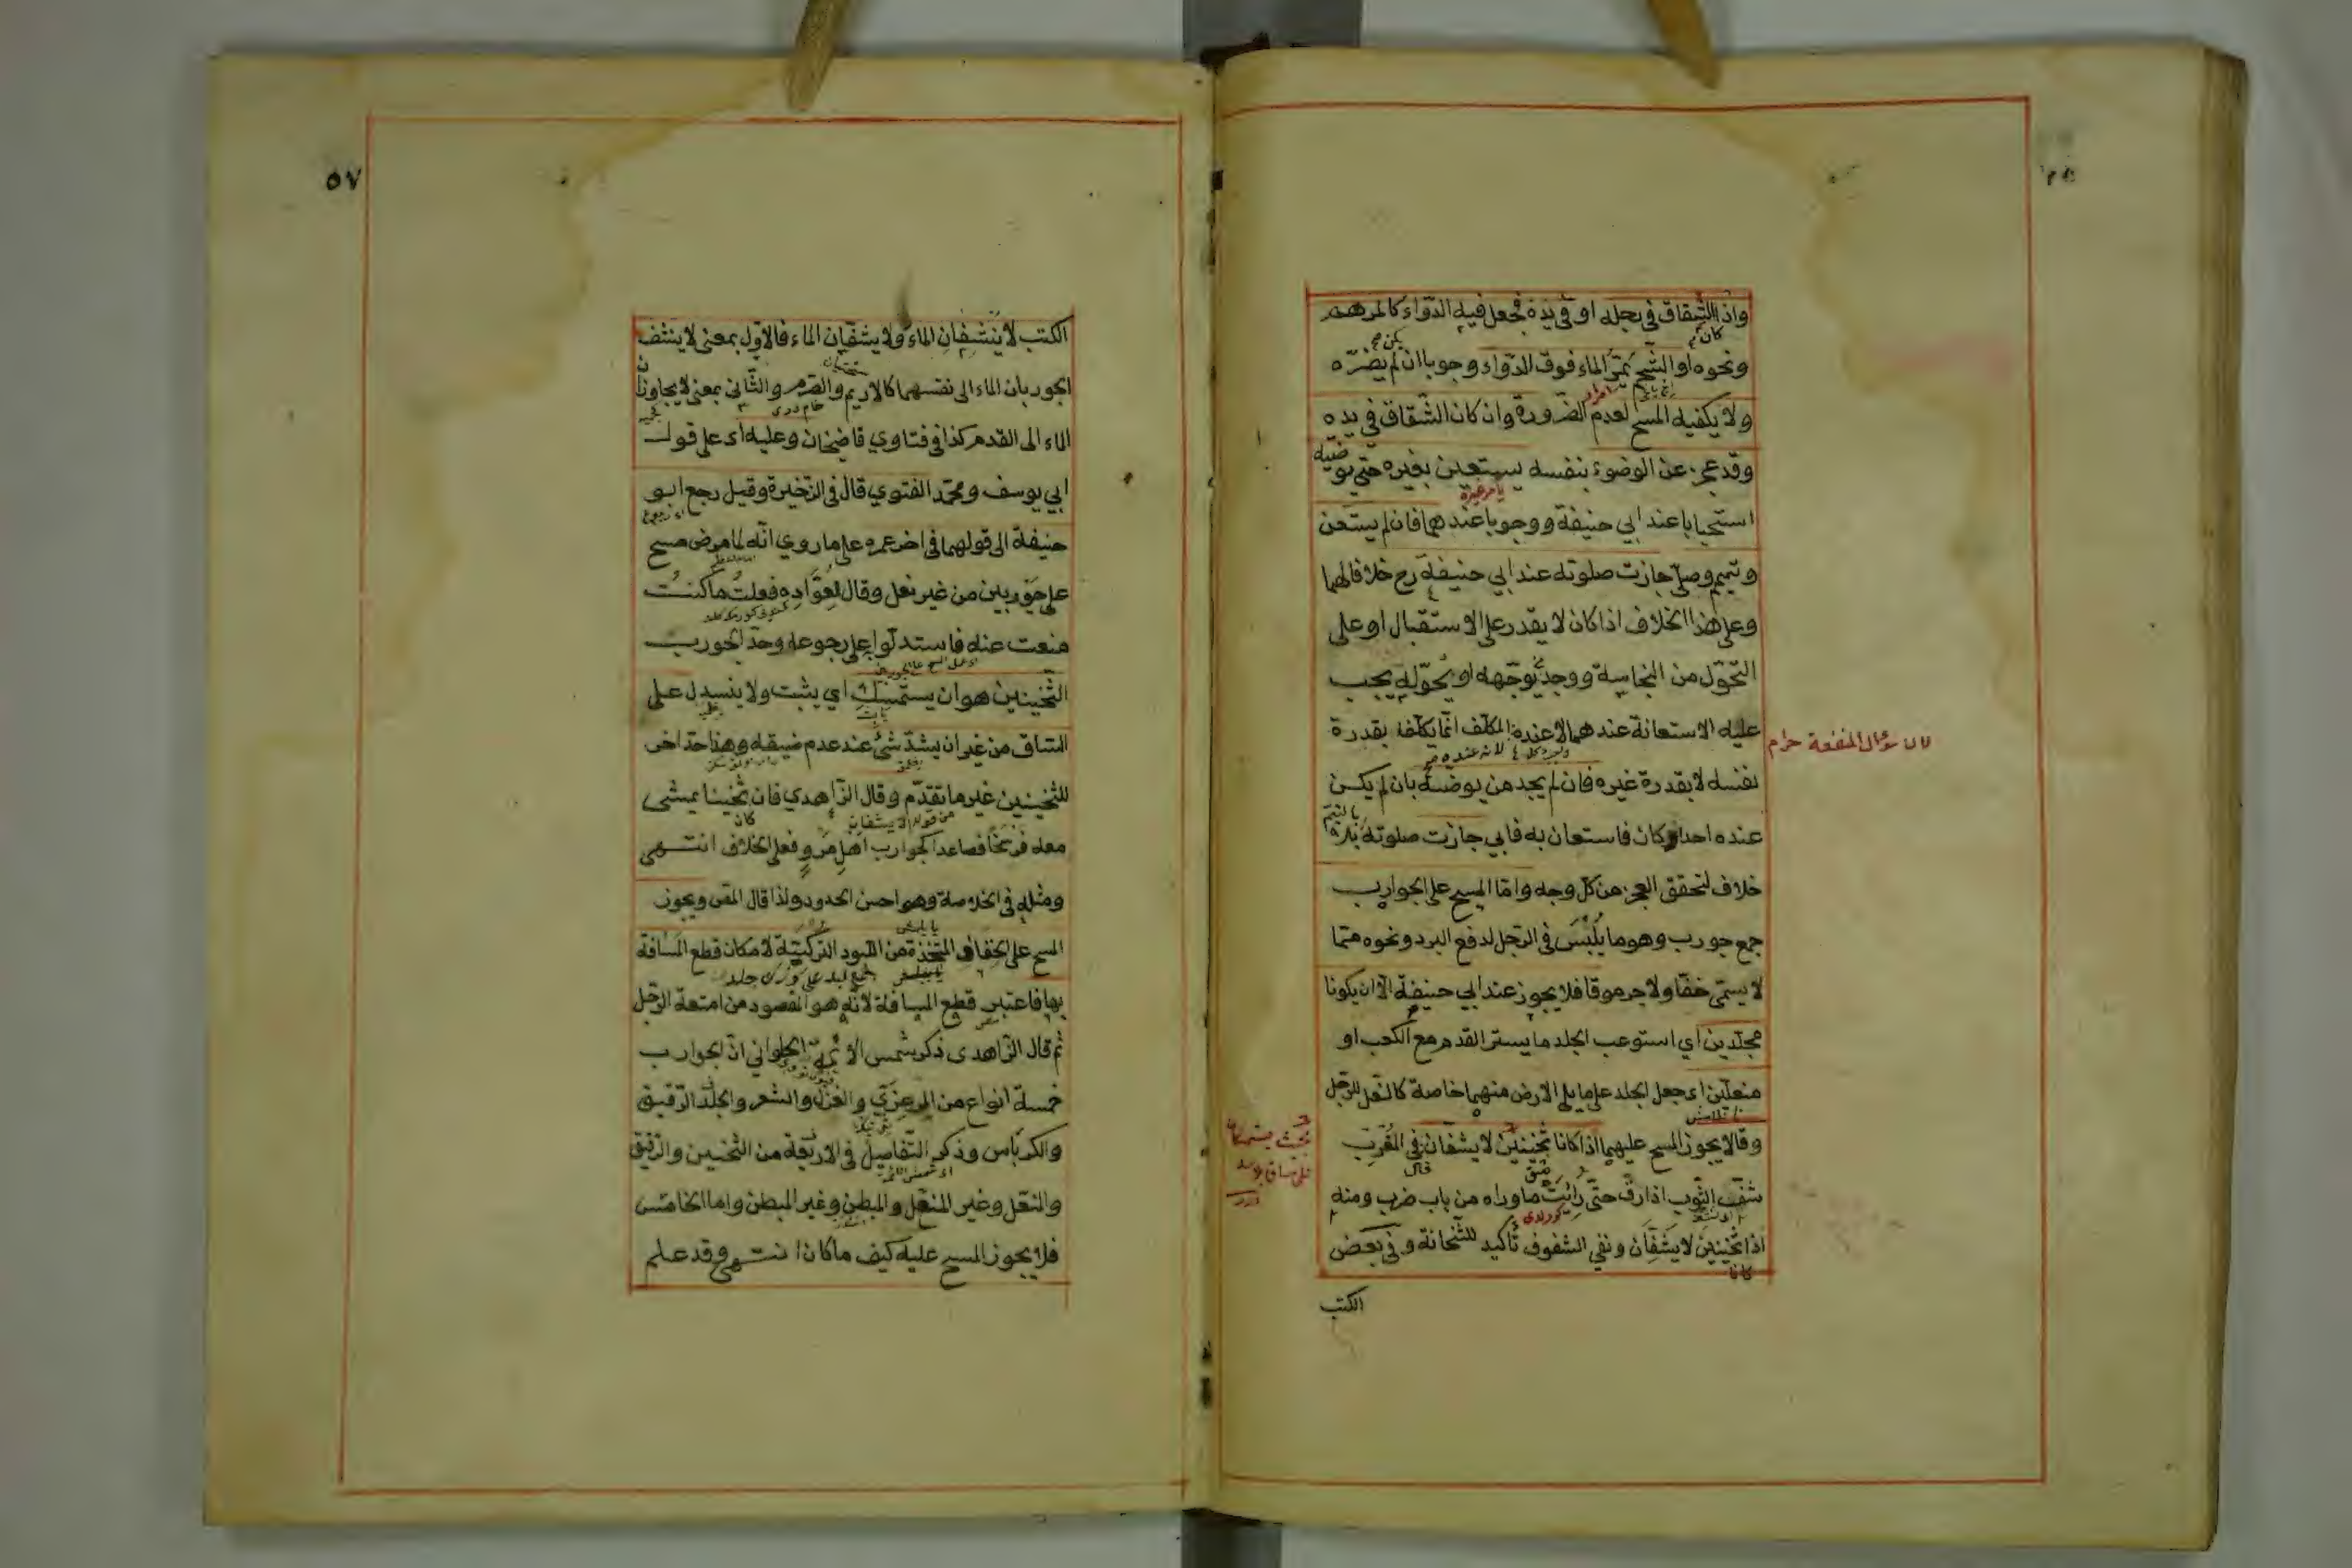 واذا الشقاق في رجله او في يده فجعل فيه الدواء كالمرهم
كان
ونحوه او الشحم يمرّ الماء فوق الدواء وجوبا ان لم يضرّه
ولا يكفيه المسح لعدم الضرورة وان كان الشقاق في يده
وقد عجز عن الوضوء بنفسه يستعين بغيره حتى يوضيه
استحبابا عند ابي حنيفة ووجوبا عندهما فان لم يستعن
وتيمم وصلى جازت صلوته عند ابي حنيفة رح خلافا لهما
وعلى هذا الخلاف اذا كان لا يقدر على الاستقبال او على
التحوّل من النجاسة ووجد يوجّهه او يحوّله يجب
عليه الاستعانة عندهما لا عنده المكلف انما يكلف بقدرة
لان سؤال المنفعة حرام
لانه عنده
نفسه لا بقدرة غيره فان لم يجد من يوضئه بان لم يكن
عنده احد او كان فاستعان به فابى جازت صلوته بلا
بالتيمم
خلاف لتحقق العجز من كل وجه واما المسح على الجوارب
جمع جورب وهو ما يُلْبَسُ في الرّجل لدفع البرد ونحوه مما
لا يسمّى خفّا ولا جرموقا فلا يجوز عند ابي حنيفة الا ان يكونا
مجلّدين اي استوعب الجلد ما يستر القدم مع الكعب او
منعلين اي جعل الجلد على ما يلي الارض منهما خاصة كالنعل للرّجل
وقالا يجوز المسح عليهما اذا كانا ثخينين لا يشفّان في المُغْرِب
قال
شفّ الثوب اذا رقّ حتى رأيت ما وراءه من باب ضرب ومنه
اذا ثخينين لا يشفّان ونفي الشفوف تأكيد للثخانة وفي بعض
كانا
الكتب
٥٧
الكتب لا ينشّفان الماء ولا يشفّان الماء فالاول بمعنى لا ينشف
الجوربان الماء الى نفسهما كالاديم والصّرم والثاني بمعنى لا يجاوزان
الماء الى القدم كذا في فتاوي قاضيخان وعليه اي على قول
ابي يوسف ومحمّد الفتوي قال في الذّخيرة وقيل رجع ابو
حنيفة الى قولهما في اخر عمره على ما روي انّه لما مرض مسح
على جوربين من غير نعل وقال لعوّاده فعلت ما كنت
منعت عنه فاستدلّوا على رجوعه وحدّ الجورب
الثخينين هو ان يستمسك اي يثبت ولا ينسدل على
الساق من غير ان يشدّ شئ عند عدم ضيقه وهذا حدّ اخر
للثخينين غير ما تقدّم وقال الزّاهدي فان ثخينا يمشي
من قوله لا يشفان
كان
معه فرسخا فصاعدا كجوارب اهل مرو فعلى الخلاف انتهى
ومثله في الخلاصة وهو احسن الحدود ولذا قال المص ويجوز
المسح على الخفاف المتخذة من اللبود التركيّة لامكان قطع المسافة
بها فاعتبر قطع المسافة لانّه هو المقصود من امتعة الرّجل
ثم قال الزّاهدي ذكر شمس الائمة الحلواني انّ الجوارب
خمسة انواع من المرعزّي والغزل والشعر والجلد الرّقيق
والكرباس وذكر التّفاصيل في الاربعة من الثخين والرّقيق
والمنعّل وغير المنعّل والمبطن وغير المبطن واما الخامس
فلا يجوز المسح عليه كيف ما كان انتهى وقد علم